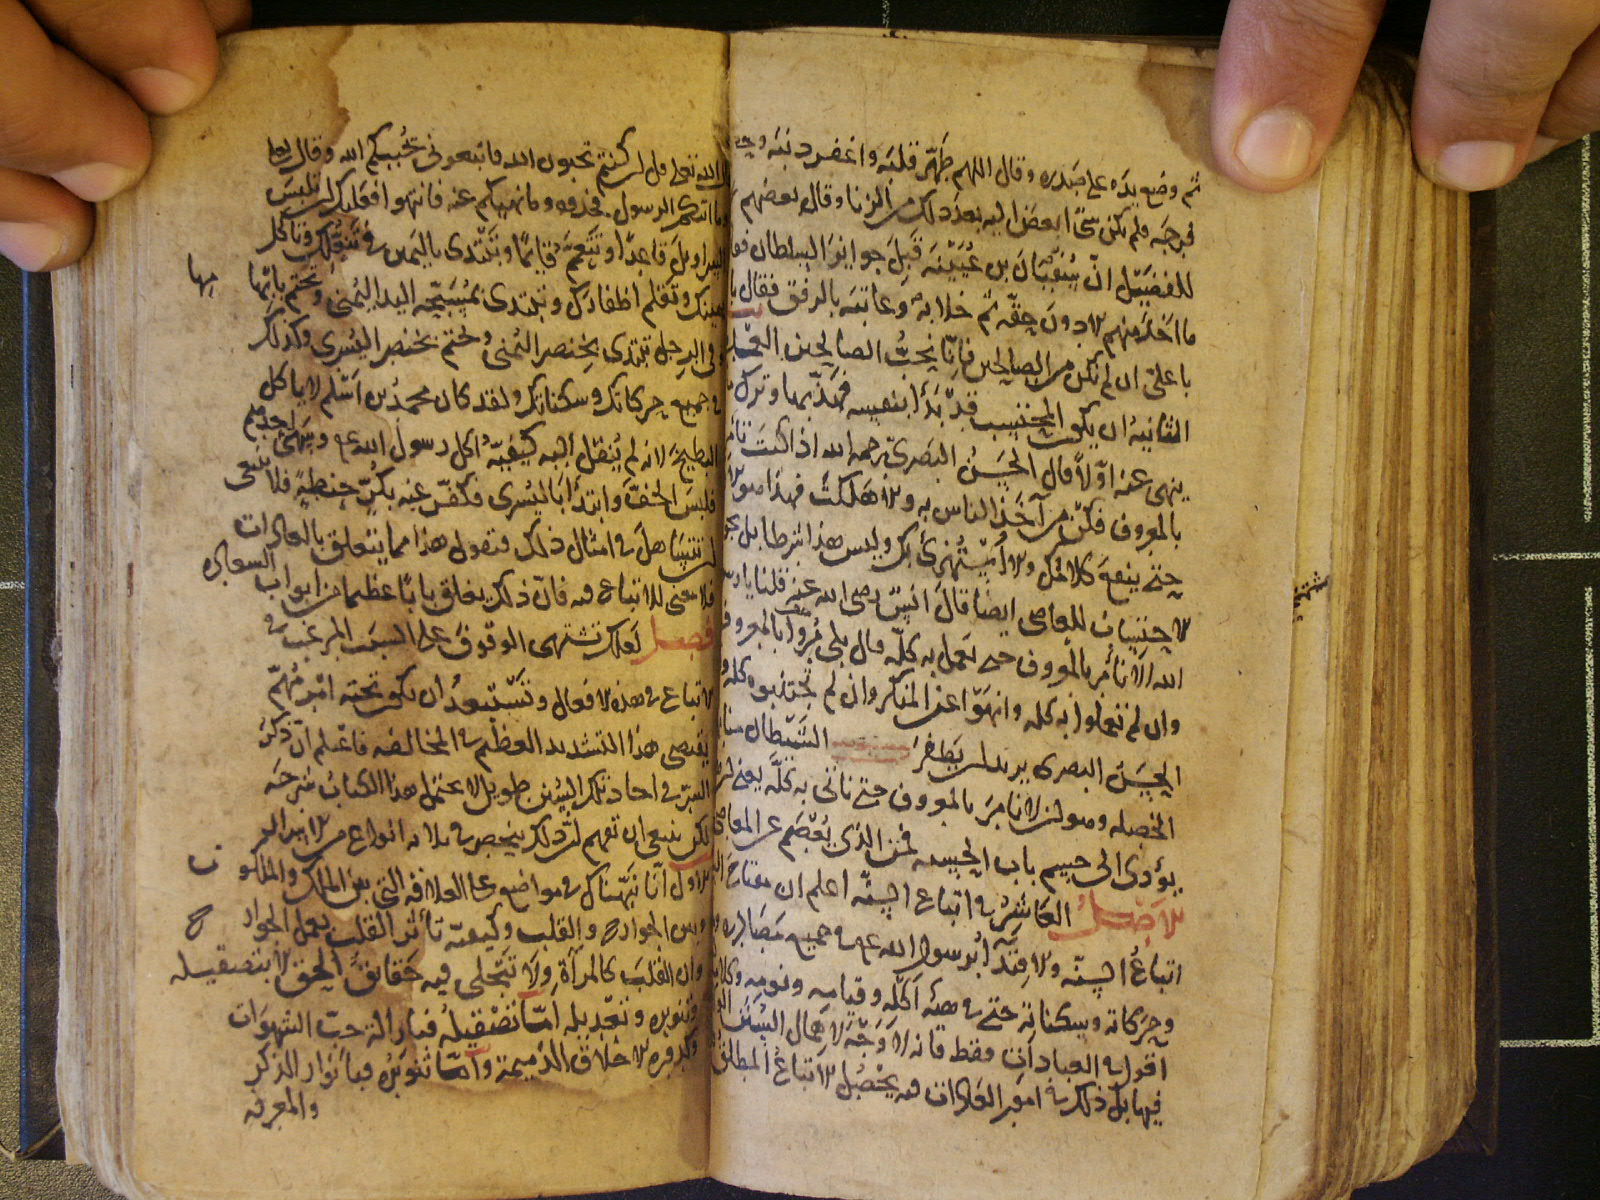 ثم وضع يده على صدره وقال اللهم طهر قلبه واغفر ذنبه وحصن
فرجه فلم يكن شئ ابغض اليه بعد ذلك من الزنا وقال بعضهم
للفضيل ان سفيان بن عيينة قبل جوايز السلطان فقال
ما اخذ منهم الا دون حقه ثم خلا به وعاتبه بالرفق فقال يا
با على ان لم نكن من الصالحين فانا نحب الصالحين
الثانية ان يكون المحتسب قد بدأ بنفسه فهذبها وترك ما
ينهى عنه اولا قال الحسن البصرى رحمه الله اذا كنت تأمر
بالمعروف فكن من آخذ الناس به والا هلكت فهذا هو الاولى
حتى ينفع كلامك والا استهزئ بك وليس هذا شرطا بل يجوز
الاحتساب للعاصى ايضا قال انس رضى الله عنه قلنا يا رسول
الله الا نأمر بالمعروف حتى نعمل به كله قال بلى مروا بالمعروف
وان لم تعملوا به كله وانهوا عن المنكر وان لم تجتنبوه كله و
الحسن البصرى يريد ان لا يظفر الشيطان منا بهذه
الخصلة وهو ان لا نأمر بالمعروف حتى نأتى به كله يعنى ان هذا
يؤدى الى حسم باب الحسبة فمن الذى يعصم عن المعاصى
الاصل العاشر فى اتباع السنة اعلم ان مفتاح السعادة
اتباع السنة والاقتداء برسول الله عم فى جميع مصادره
وحركاته وسكناته حتى فى هيئة اكله وقيامه ونومه وكلامه
اقول فى العبادات فقط فانه لا وجه لاهمال السنن
فيها بل ذلك فى امور العادات فبه يحصل الاتباع المطلق
قال الله تعالى قل ان كنتم تحبون الله فاتبعونى يحببكم الله وقال تعالى
وما اتيكم الرسول فخذوه وما نهيكم عنه فانتهوا فعليك ان تلبس
السراويل قاعدا وتتعمم قايما وتبتدى باليمين فى تنعلك وتأكل
بيمينك وتقلم اظفارك وتبتدى بمسبحة اليد اليمنى وتختم بابهامها
وفى الرجل تبتدى بخنصر اليمنى وتختم بخنصر اليسرى وكذلك
فى جميع حركاتك وسكناتك ولقد كان محمد بن اسلم لا يأكل
البطيخ لانه لم ينقل اليه كيفية اكل رسول الله عم وسهى احدهم
فلبس الخف وابتدأ باليسرى فكفر عنه بكر حنطة فلا ينبغى
ان تتساهل فى امثال ذلك فتقول هذا مما يتعلق بالعادات
فلا معنى للاتباع فيه فان ذلك يغلق بابا عظيما من ابواب السعادة
فصل لعلك تشتهى الوقوف على السبب المرغب فى
الاتباع فى هذه الافعال وتستبعد ان يكون تحته امر مهم
يقتضى هذا التشديد العظيم فى المخالفة فاعلم ان ذكر
السر فى احاد تلك السنن طويل لا يحتمل هذا الكتاب شرحه
لكن ينبغى ان تفهم ان ذلك ينحصر فى ثلاثة انواع من الاسرار
الاول انا نبهناك فى مواضع على العلاقة التى بين الملك والملكوت
وبين الجوارح والقلب وكيفية تأثر القلب بعمل الجوارح
وان القلب كالمرآة ولا تتجلى فيه حقائق الحق الا بتصقيله
وتنويره وتعديله اما تصقيله فبازالة خبث الشهوات
وكدورة الاخلاق الذميمة واما تنويره فبانوار الذكر
والمعرفة